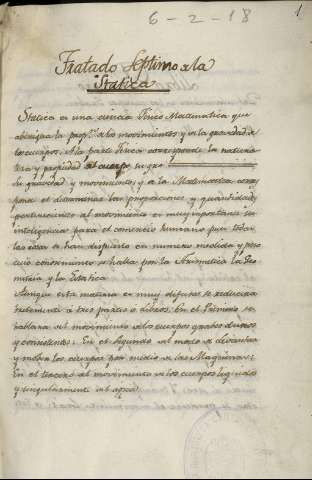 6-2-18
1
Tratado Septimo de la
Statica
Statica es una ciencia Fisico Matematica que
de los movimientos, y de la gravedad de
los cuerpos, a la parte Fisica corresponde la natura
leza y propiedad del cuerpo, su gra
su gravedad y movimiento; y a la Matematica corres
ponde el examinar las proporciones y quantidad
perteneciente al movimiento es muy importante su
inteligencia para el comercio humano pues todas
las cosas se han dispuesto en numero medida y peso
cuio conocimiento se halla por la Arismetica la Geo
metria y la Estatica
Aunque esta materia es muy difusa se reducirá
a tres partes o libros. En el Primero se
hablara del movimiento de los cuerpos graves duros
y consistentes. En el Segundo del modo de levantar
y mober los cuerpos por medio de las Maquinas:
En el tercero del movimiento de los cuerpos liquidos
y singularmente del agua.